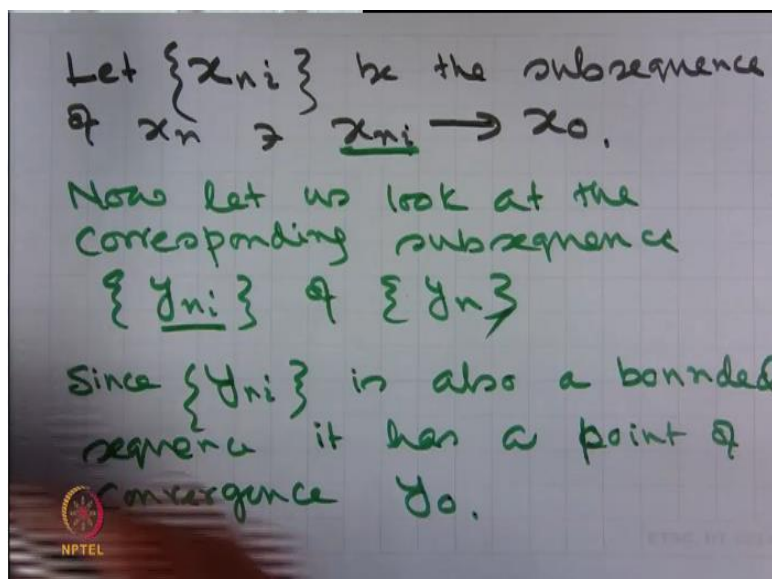 Let {x_ni} be the subsequence
of x_n ∋ x_ni → x_0.
Now let us look at the
corresponding subsequence
{y_ni} of {y_n}
Since {y_ni} is also a bounded
sequence it has a point of
convergence y_0.
NPTEL